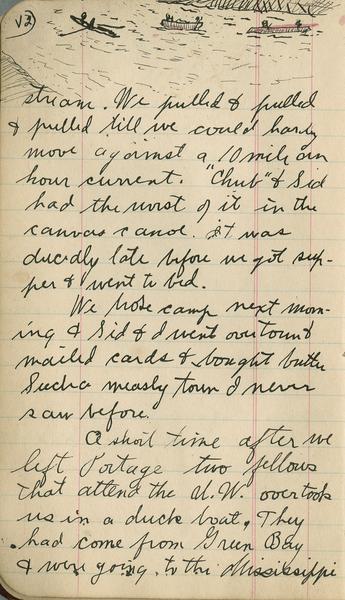 13
stream. We pulled & pulled
& pulled till we could hardly
move against a 10 mile an
hour current. "Chub" & Sid
had the worst of it in the
canvas canoe. it was
ducedly late before we got sup-
per & went to bed.
We broke camp next morn-
ing & Sid & I went over town &
mailed cards & bought butter
Such a measly town I never
saw before.
A short time after we
left Portage two fellows
that attend the U.W. overtook
us in a duck boat. They
had come from Green Bay
& were going to the Mississippi